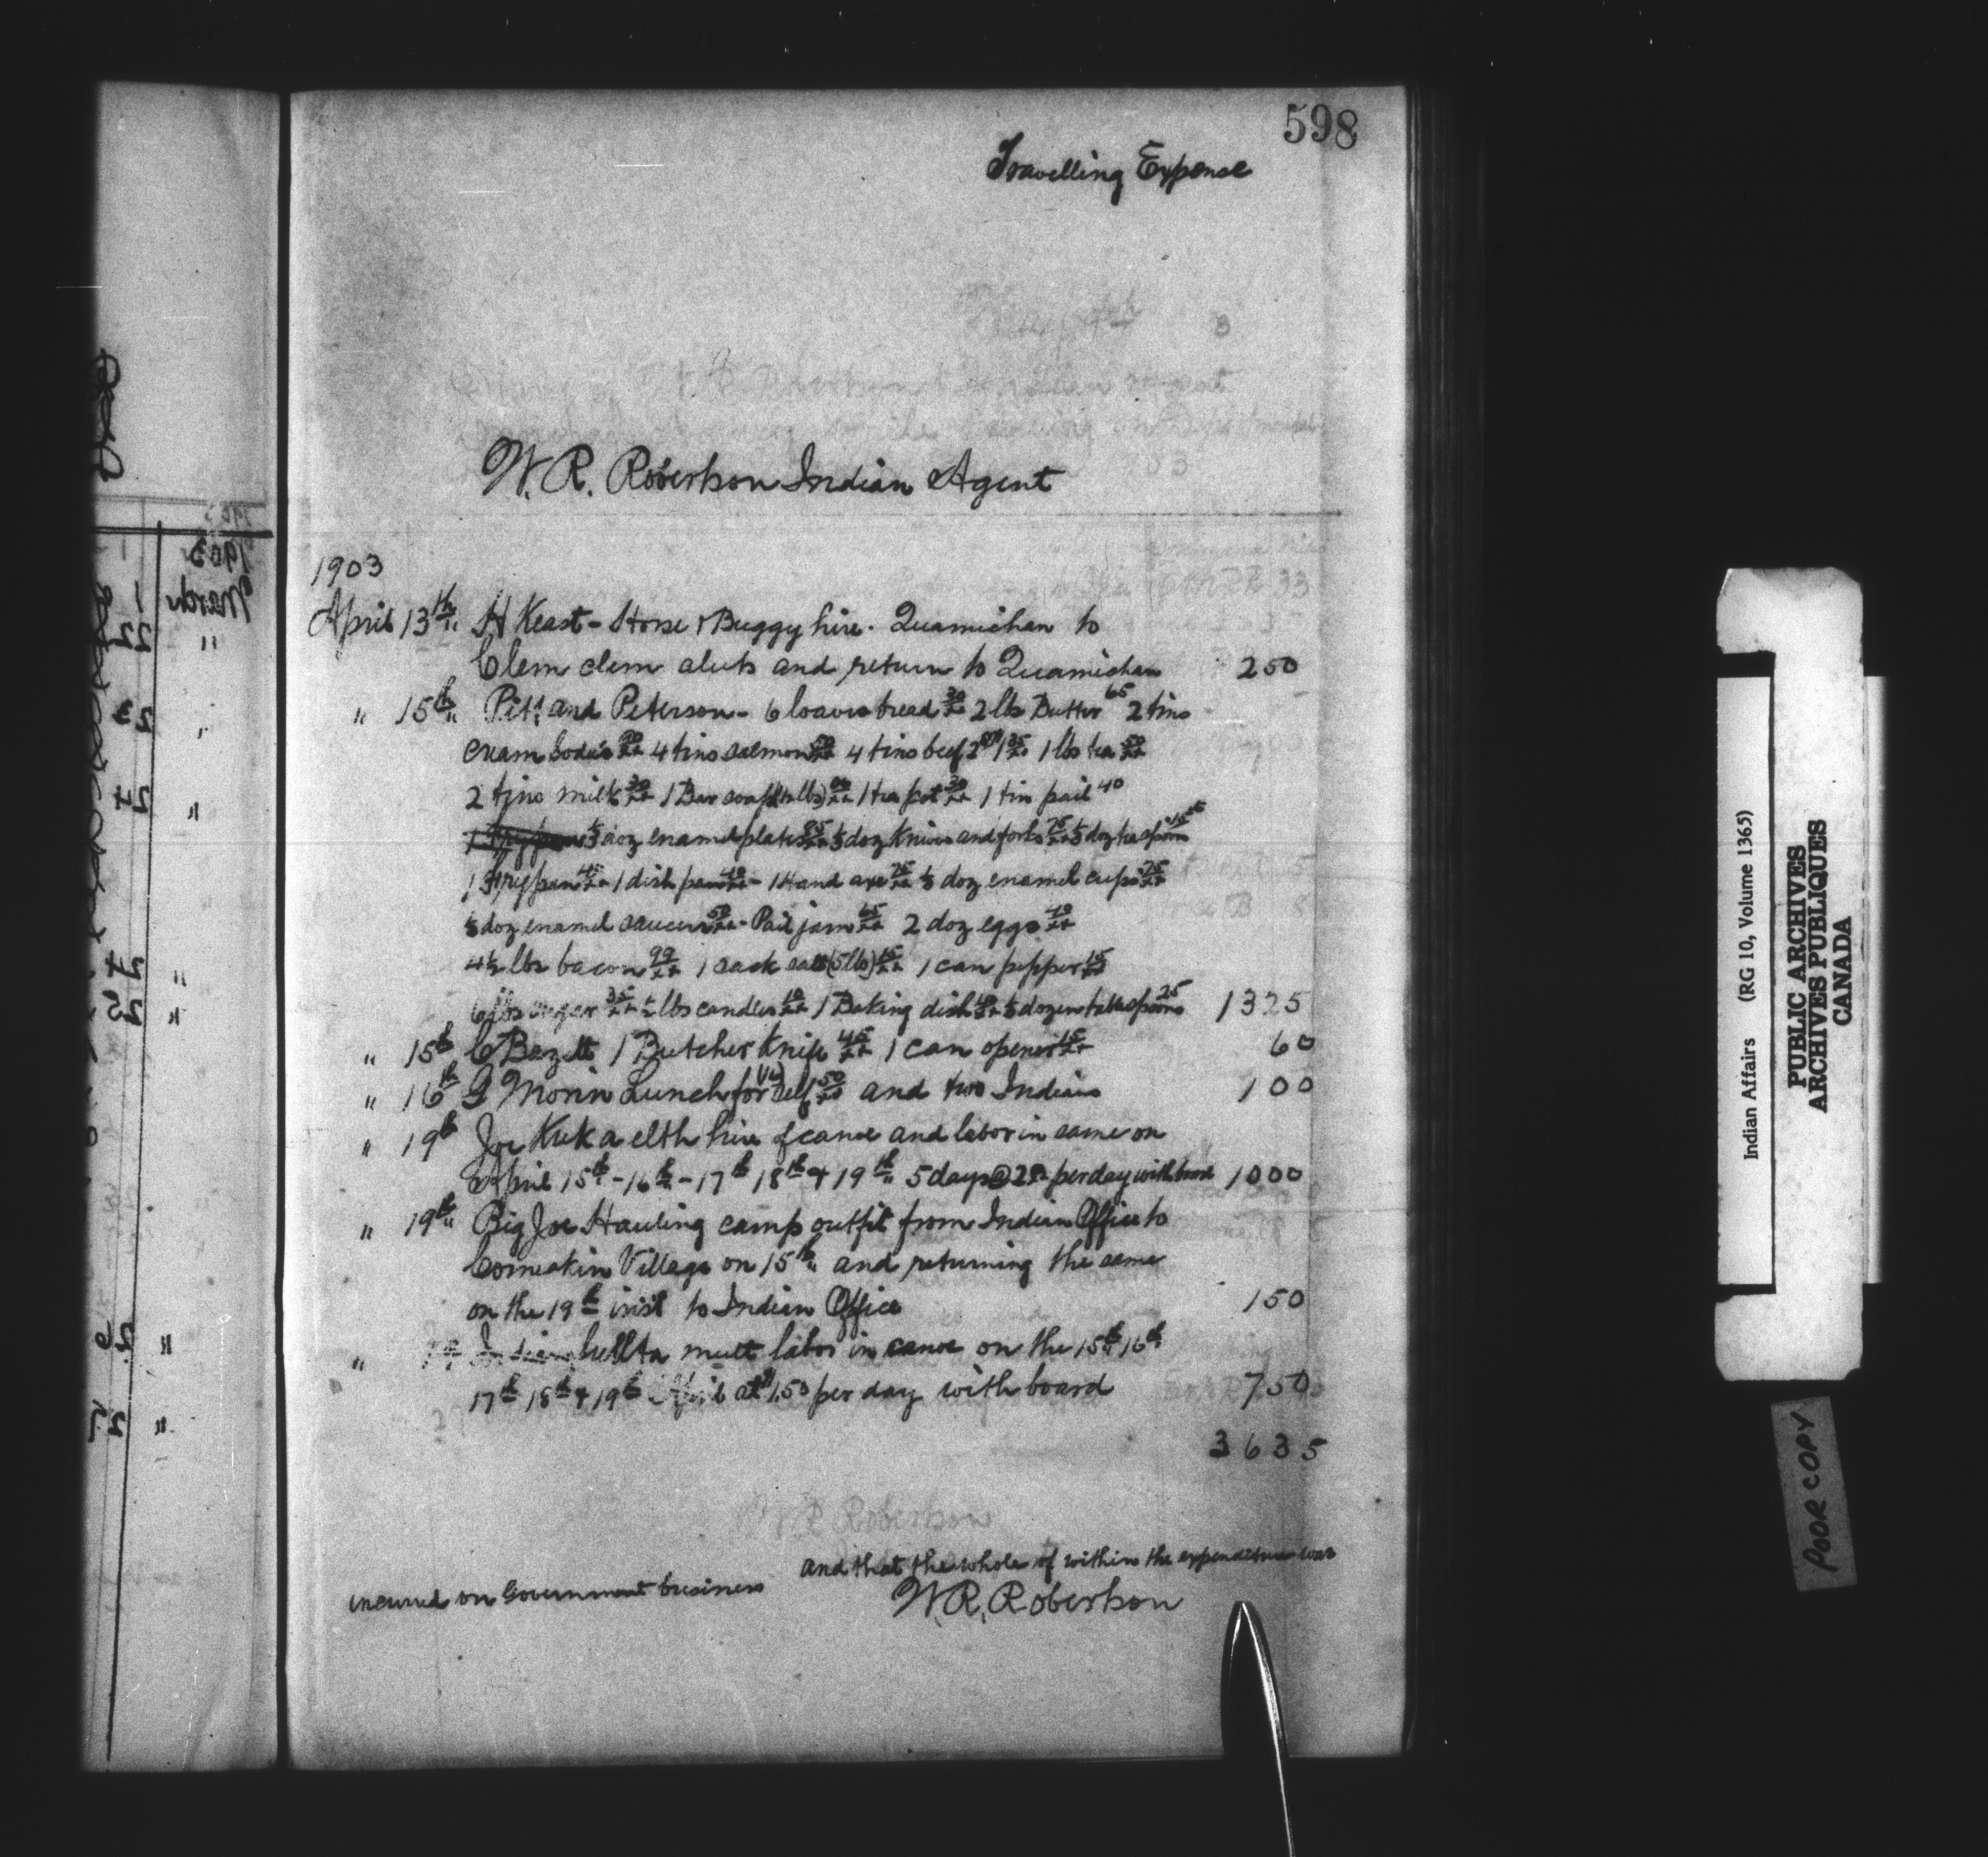 598
Travelling Expense
W. R. Robertson Indian Agent
1903
April 13th H Keast - Horse & Buggy hire. Quamichan to
Clem clem aluts and return to Quamichan 250
" 15th Pitt and Peterson - 6 loaves bread 30/xx 2 lbs Butter 65 2 tins
cream Sodas 4 tins salmon 4 tins beef 1 lbs tea 50/xx
2 tins milk 30/xx 1 Bar soap 1 tea pot 30/xx 1 tin pail 40
1/3 doz enamel plates 1/3 doz Knives and forks 75/xx 1/3 doz teaspoons
1 Frypan 45/xx - 1 dish pan 40/xx - 1 Hand axe 75/xx 1/3 doz enamel cups 75/xx
1/3 doz enamel saucers 50/xx - Pail jam 65/xx 2 doz eggs 40/xx
4 1/2 lbs bacon 99/xx 1 sack salt (5 lbs) 15/xx 1 can pepper 15/xx
6 lbs sugar 35/xx 1/2 lbs candles 10/xx 1 Baking dish 1/3 dozen tablespoons 25 1325
" 15th C Bazett 1 Butcher Knife 45/xx 1 can opener 15/xx 60
" 16th G Morin Lunch for self 50/xx and two Indians 100
" 19th Joe Kuk a elth hire of canoe and labor in same on
April 15th - 16th - 17th 18th & 19th 5 days @ 2 per day with board 1000
" 19th Big Joe Hauling camp outfit from Indian Office to
Comeakin Village on 15th and returning the same
on the 19th inst to Indian Office 150
" 19 Indian mult labor in canoe on the 15th 16th
17th 18th & 19th April at 1.50 per day with board 750
3635
W R Robertson
and that the whole of within the expenditure was
incurred on Government business
W. R. Robertson
1903
March
Indian Affairs (RG 10, Volume 1365)
PUBLIC ARCHIVES
ARCHIVES PUBLIQUES
CANADA
POOR COPY